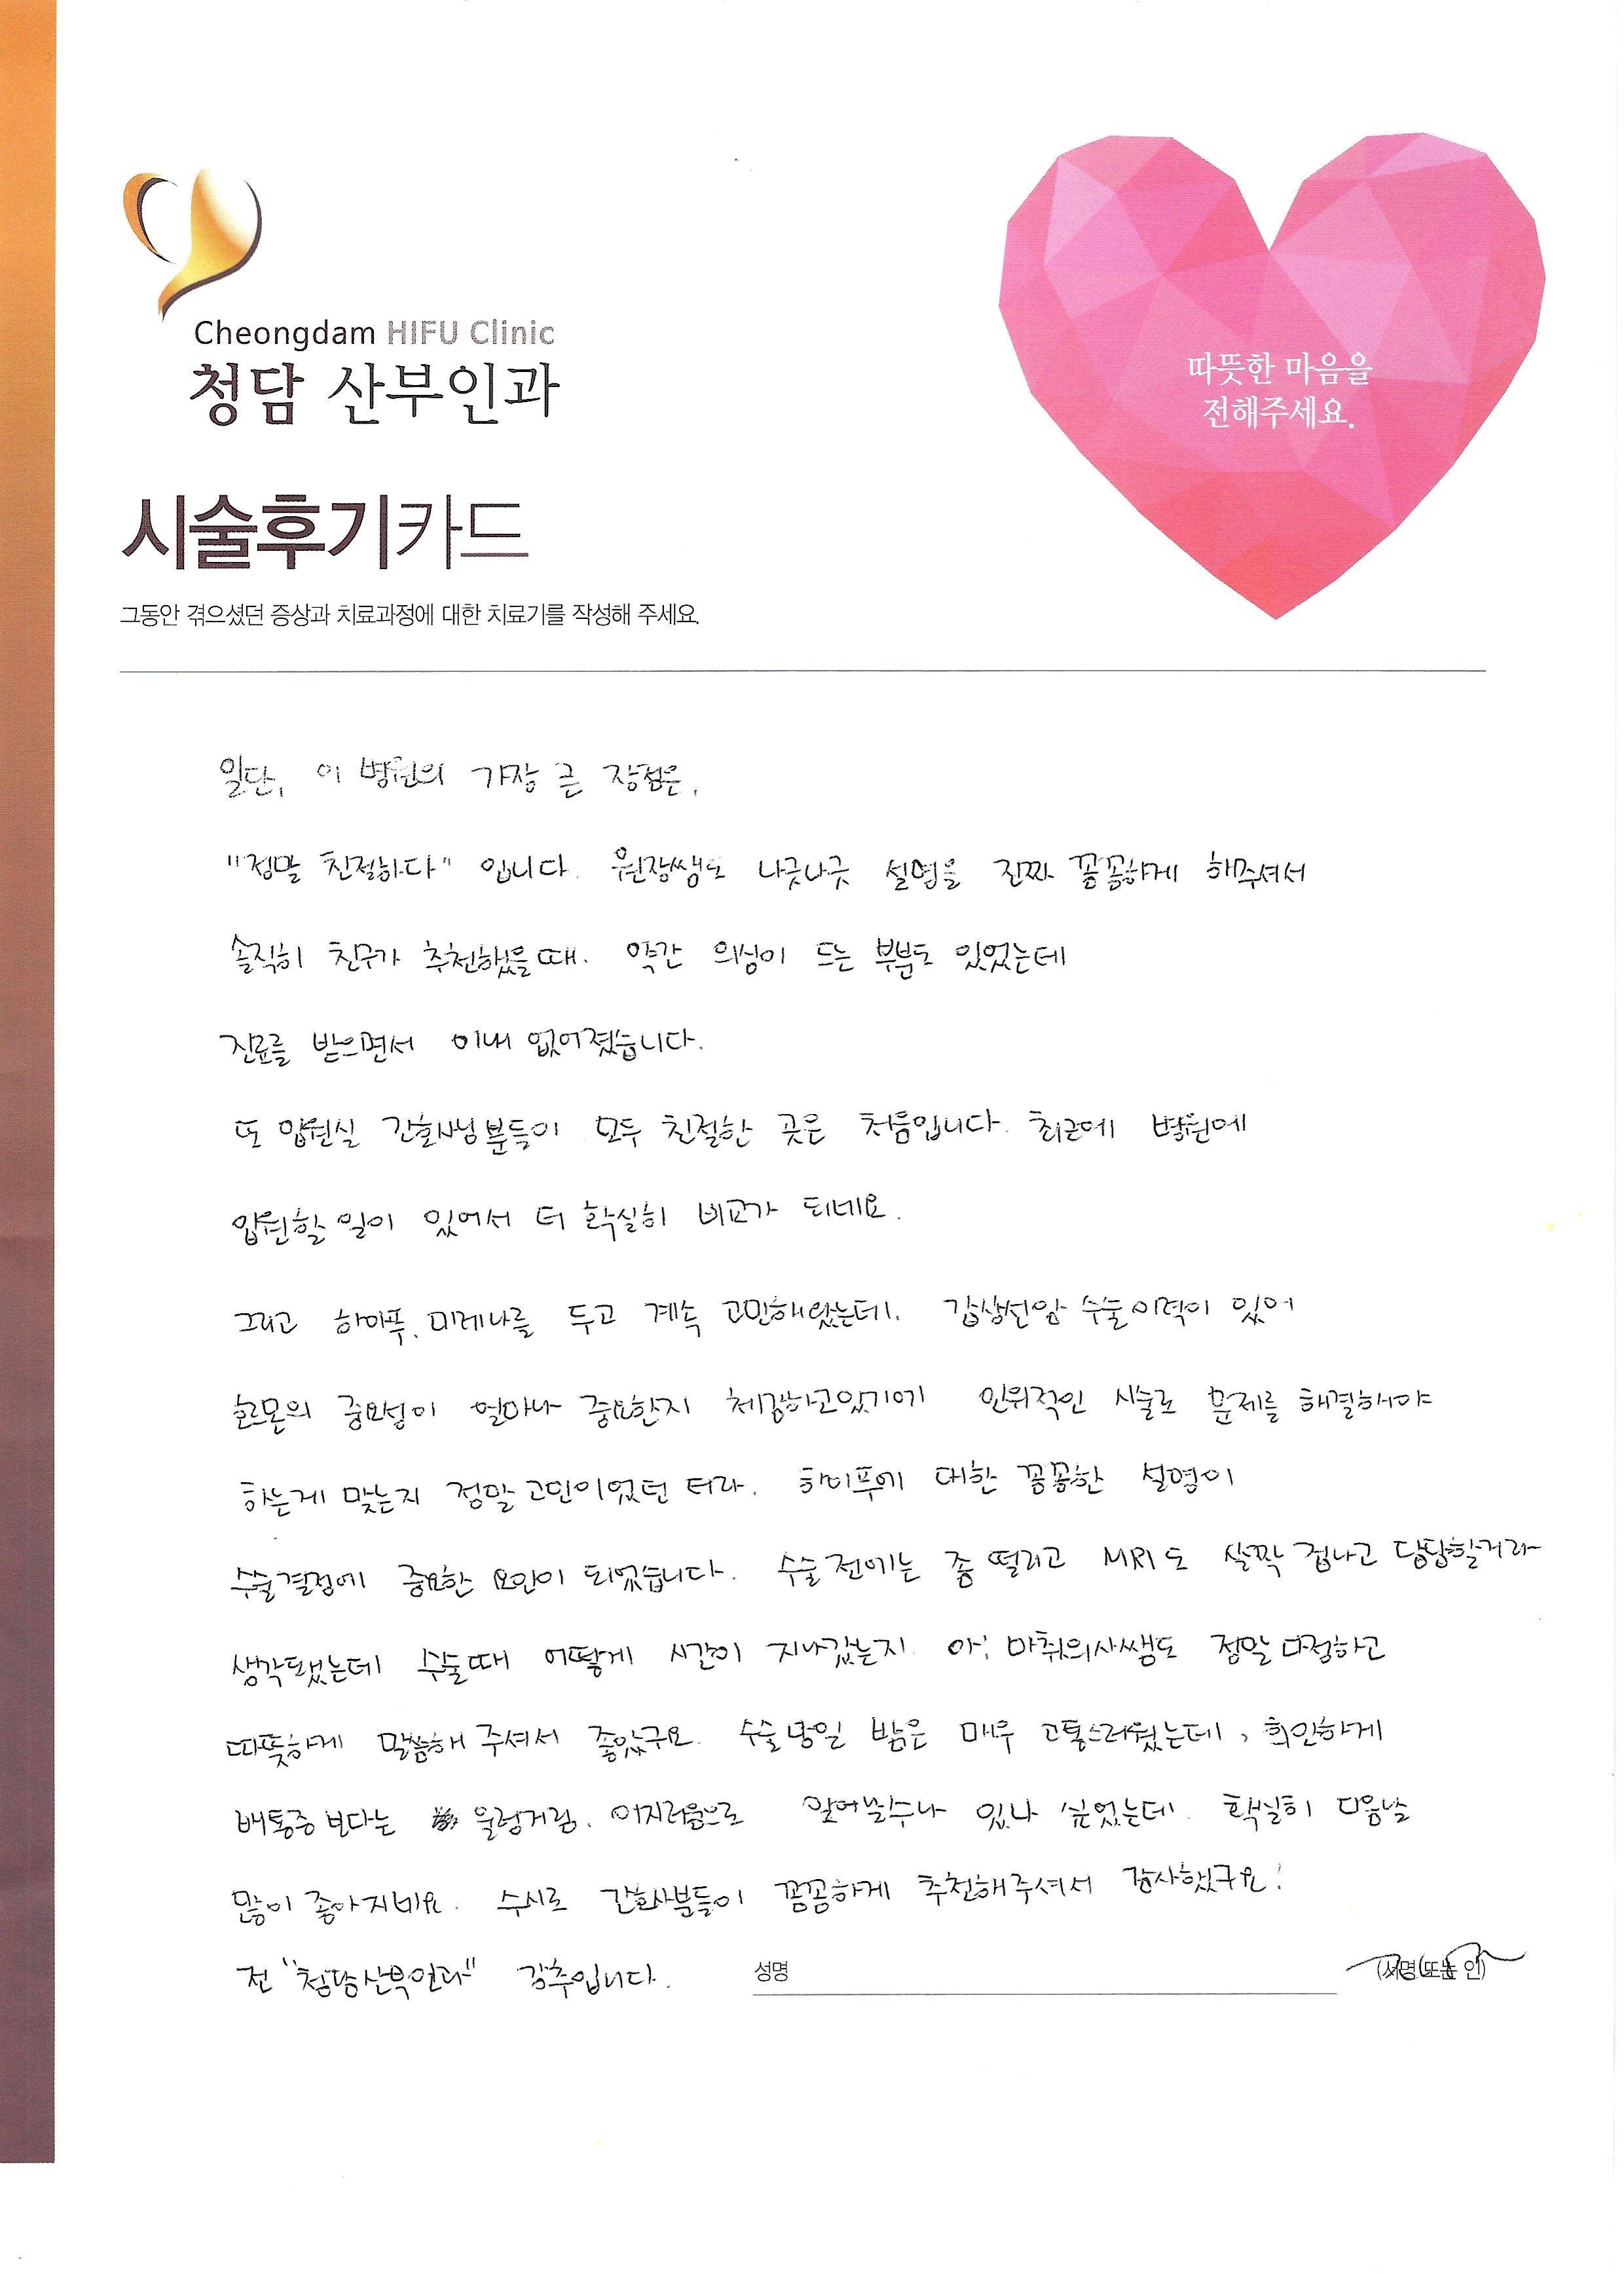 Cheongdam HIFU Clinic
청담 산부인과
따뜻한 마음을
전해주세요.
시술후기카드
그동안 겪으셨던 증상과 치료과정에 대한 치료기를 작성해 주세요.
일단, 이 병원의 가장 큰 장점은,
"정말 친절하다" 입니다. 원장쌤도 나긋나긋 설명을 진짜 꼼꼼하게 해주셔서
솔직히 친구가 추천했을때. 약간 의심이 드는 부분도 있었는데
진료를 받으면서 이내 없어졌습니다.
또 입원실 간호사님분들이 모두 친절한 곳은 처음입니다. 최근에 병원에
입원할 일이 있어서 더 확실히 비교가 되네요.
그리고 하이푸, 미레나를 두고 계속 고민해왔는데. 갑상선암 수술이력이 있어
호르몬의 중요성이 얼마나 중요한지 체감하고있기에 인위적인 시술로 문제를 해결해야
하는게 맞는지 정말 고민이었던 터라. 하이푸에 대한 꼼꼼한 설명이
수술결정에 중요한 요인이 되었습니다. 수술 전에는 좀 떨리고 MRI도 살짝 겁나고 답답할거라
생각됐는데 수술때 어떻게 시간이 지나갔는지. 아! 마취의사쌤도 정말 다정하고
따뜻하게 말씀해 주셔서 좋았구요. 수술 당일 밤은 매우 고통스러웠는데, 희안하게
배통증 보다는 울렁거림. 어지러움으로 있나 싶었는데. 확실히 다음날
많이 좋아지네요. 수시로 간호사분들이 꼼꼼하게 추천해주셔서 감사했구요!
전 "청담산부인과" 강추입니다.
성명
(서명 또는 인)